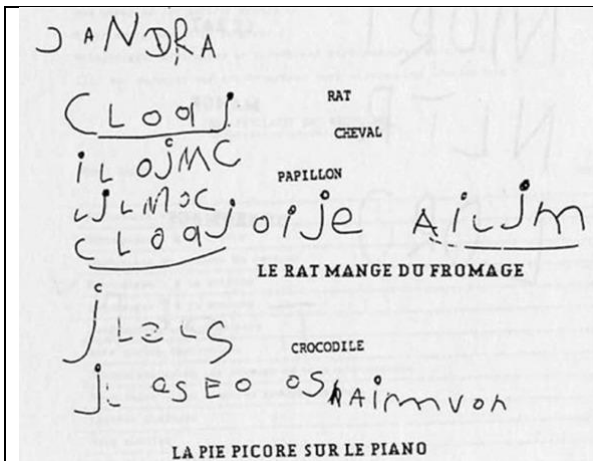 JANDRA
CLOqJ
RAT
CHEVAL
iLOJMC
PAPILLON
LJLMOC
CLOqJ oije AiLJm
LE RAT MANGE DU FROMAGE
CROCODILE
LA PIE PICORE SUR LE PIANO